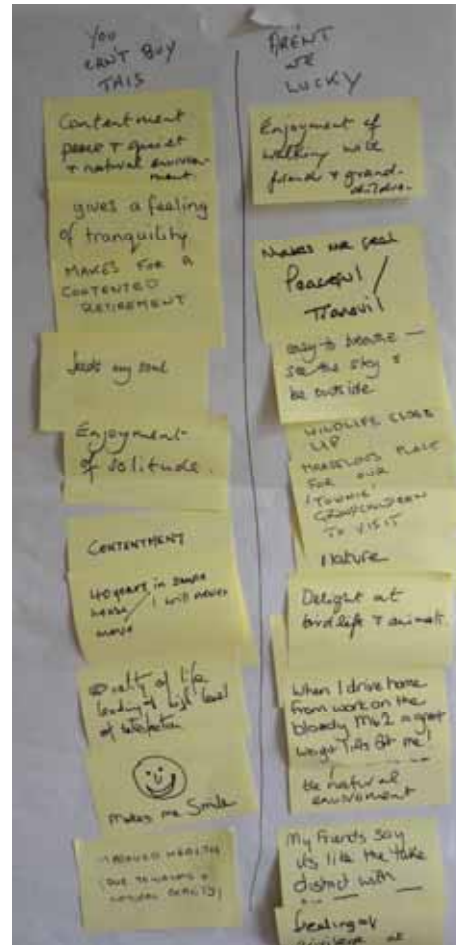 YOU
CAN'T BUY
THIS
Contentment
peace & quiet
& natural environ-
ment.
gives a feeling
of tranquility
MAKES FOR A
CONTENTED
RETIREMENT
feeds my soul
Enjoyment
of solitude.
CONTENTMENT
40 years in same
house I will never
move
Quality of life
leading to high level
of satisfaction
makes me Smile
IMPROVED HEALTH
(DUE TO WALKING &
NATURAL BEAUTY)
AREN'T
WE
LUCKY
Enjoyment of
walking with
friends & grand-
children.
Makes me feel
Peaceful /
Tranquil
easy to breathe —
see the sky &
be outside
WILDLIFE CLOSE
UP
MARVELOUS PLACE
FOR OUR
'TOWNIE'
GRANDCHILDREN
TO VISIT
Nature
Delight at
bird life & animals.
When I drive home
from work on the
bloody M62 a great
weight lifts off me!
the natural
environment
My friends say
its like the lake
district with
feeling of